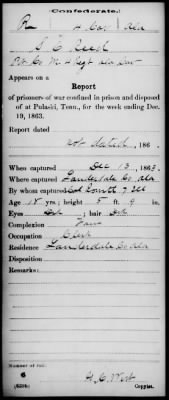 Confederate.
R 4 Cav Ala
S. C. Reed
Pvt Co M 4 Regt Ala Cav
Appears on a
Report
of prisoners of war confined in prison and disposed
of at Pulaski, Tenn., for the week ending Dec.
19, 1863.
Report dated
not dated, 186 .
When captured Dec 13, 1863.
Where captured Lauderdale Co Ala
By whom captured Col 7 Ill
Age 18 yrs; height 5 ft. 9 in.
Eyes Dk; hair Dk
Complexion Fair
Occupation Clerk
Residence Lauderdale Co Ala
Disposition
Remarks:
Number of roll:
6
Copyist.